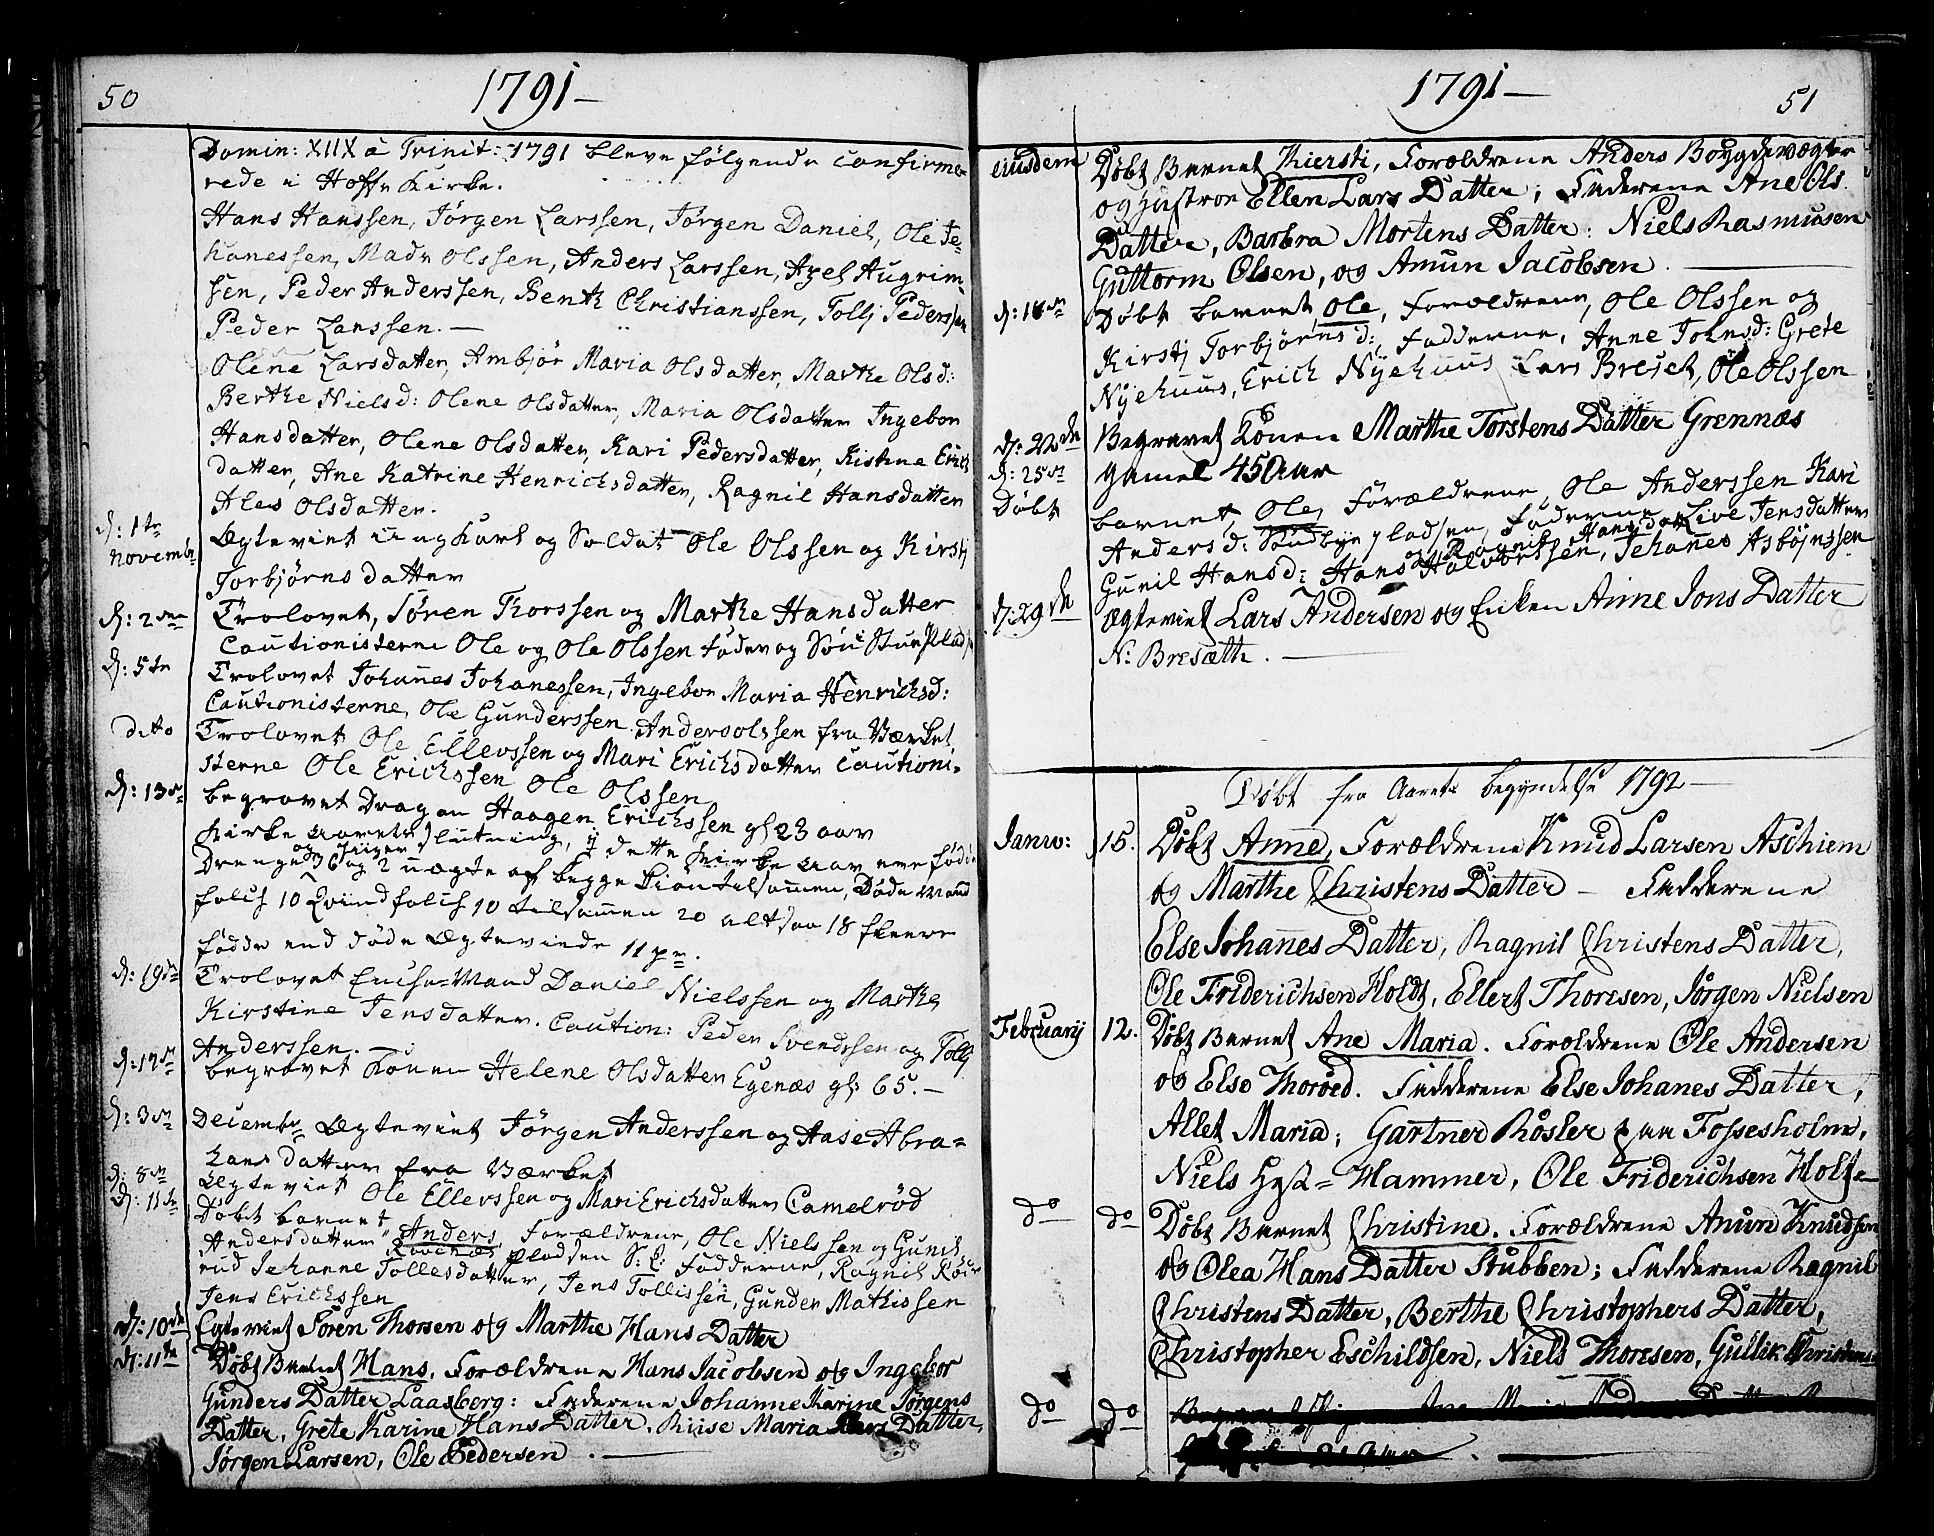 50
1791 —
Domin: XIIX a Trinit: 1791 bleve følgende confirme-
rede i Hoffs Kirke.
Hans Hanssen, Jørgen Larssen, Jørgen Daniel, Ole Jo-
hanessen, Mads Olssen, Anders Larssen, Axel Augrim-
sen, Peder Anderssen, Bent Christianssen, Tollj Pederssen
Peder Larssen. —
Olene Larsdatter, Ambjør Maria Olsdatter, Marthe Olsd:
Berthe Nielsd: Olene Olsdatter, Maria Olsdatter Ingebor
Hansdatter, Olene Olsdatter, Kari Pedersdatter, Kistine Erich
datter, Ane Katrine Henrichsdatter, Ragnil Hansdatter
Ales Olsdatter.
d: 1te Ægteviet ungkarl og Soldat Ole Olssen og Kirstj
Novembr Torbjørnsdatter
d: 2den Trolovet, Søren Thorssen og Marthe Hansdatter
Cautionisterne Ole og Ole Olssen fader og Søn Stue Plads
d: 5te Trolovet Johannes Johanessen, Ingebor Maria Henrichsd:
Cautionisterne, Ole Gunderssen Anders Olssen fra Værket
dito Trolovet Ole Ellevssen og Mari Erichsdatter Cautioni-
sterne Ole Erichssen Ole Olssen
d: 13de begravet Dragon Haagen Erichssen gl 23 aar
Kirke Aarets Slutning, i dette Kirke aar ere fødte
Drenge og Piger 36 og 2 uægte af begge Kiøn tilsamen, Døde Mand
folch 10 Qvindfolch 10 tilsamen 20 altsaa 18 fleere
fødde end døde Ægteviede 11 pr.
d: 19de Trolovet Enke-Mand Daniel Nielssen og Marthe
Kirstine Jensdatter. Caution: Peder Svendssen og Tollj
Anderssen. —
d: 17de begravet Konen Helene Olsdatter Egenæs gl: 65. —
d: 3de Decembr Ægteviet Jørgen Anderssen og Aase Abra-
hans datter fra Værket
d: 8de Ægteviet Ole Ellevssen og Mari Erichsdatter Camelrød
d: 11te Døbt barnet Anders, Forældrene, Ole Nielssen og Gunil
Andersdatter pladsen S: L: Fadderne, Ragnil
Jehanne Tollesdatter, Jens Tollissen, Gunder Mathissen
Jens Erichssen
d: 10de Egteviet Søren Thorsen og Marthe Hans Datter
d: 11te Døbt Barnet Hans, Forældrene Hans Jacobsen og Ingebor
Gunders Datter Laasberg: Fadderene Johanne Karine Jørgens
Datter, Grete Karine Hans Datter. Riise Maria Lars Datter,
Jørgen Larsen, Ole Pedersen. —
1791 —
51
eiusdem Døbt Barnet Kiersti, Forældrene Anders Bøygdevægter
og Hustroe Ellen Lars Datter; Fadderene Ane Ols
Datter, Barbra Mortens Datter: Niels Rasmusen
Guttorm Olsen, og Amun Jacobsen. —
d: 18de Døbt barnet Ole, Forældrene, Ole Olssen og
Kirstj Torbjørnsd: Fadderne, Anne Johnsd: Grete
Nyehuus, Erich Nyehuus Lars Breset, Ole Olssen
d: 22de Begravet Konen Marthe Torstens Datter Grennæs
gamel 45 Aar
d: 25de
Døbt barnet, Ole, Forældrene, Ole Anderssen Kari
Andersd: Sundbye pladsen, Faderne Live Jensdatter
og Ragnil Hansdatter
Gunil Hansd: Hans Halvorssen, Jehanes Asbøjnssen
d: 29de Ægteviet Lars Andersen og Enken Anne Jons Datter
N: Bresætt. —
Døbt fra Aarets begyndelse 1792 —
Janu: 15. Døbt Anne, Forældrene Knud Larsen Aschiem
og Marthe Christens Datter — Fadderene
Else Johannes Datter, Ragnil Christens Datter,
Ole Friderichsen Holdt, Ellert Thoresen, Jørgen Nielsen
Februarij 12. Døbt Barnet Ane Maria. Forældrene Ole Andersen
og Else Thorød. Fadderene Else Johanes Datter,
Allet Maria; Gartner Røsler paa Fossesholm,
Niels Hyst=Hammer, Ole Friderichsen Holt —
do do Døbt Barnet Christine. Forældrene Anun Knudsen
og Olea Hans Datter Stubben; Fadderene Ragnil
Christens Datter, Berthe Christophers Datter,
Christopher Eschildsen, Niels Thoresen, Gullik Christens
do do